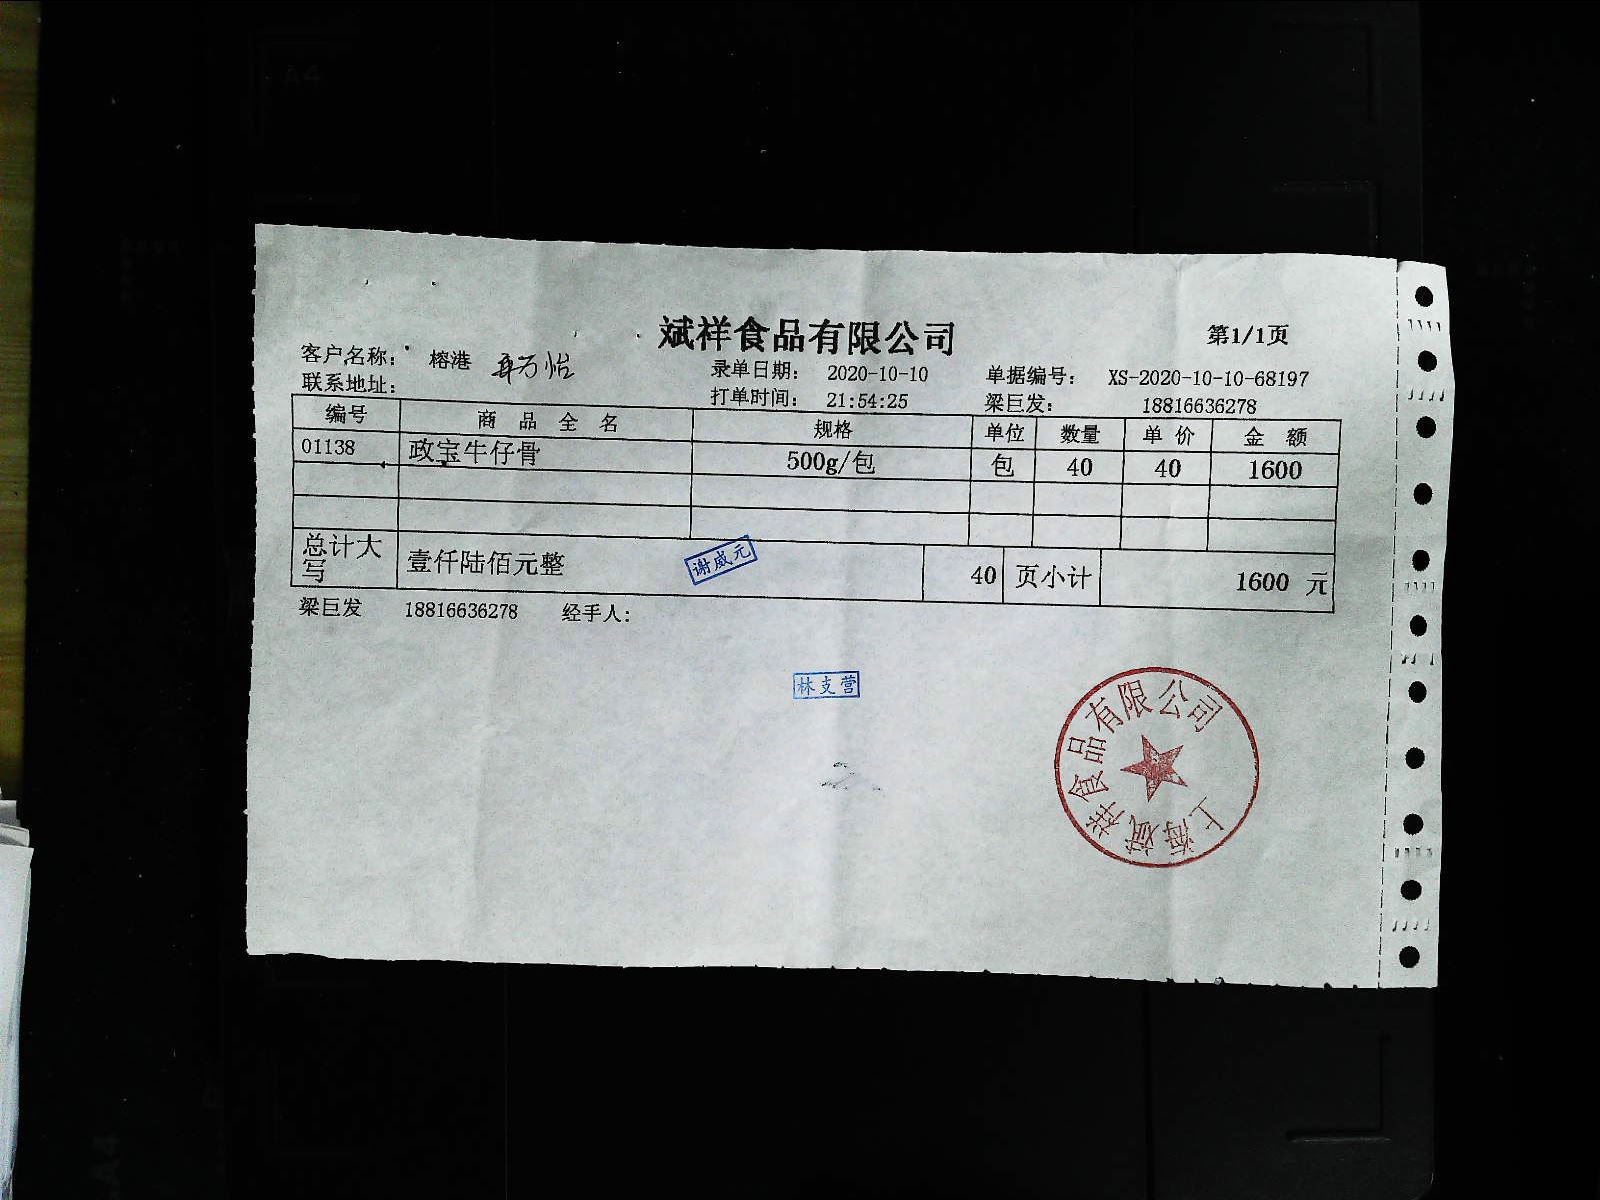 斌祥食品有限公司
第1/1页
客户名称： 榕港
录单日期： 2020-10-10
单据编号： XS-2020-10-10-68197
联系地址：
打单时间： 21:54:25
梁巨发： 18816636278
编号 商品全名 规格 单位 数量 单价 金额
01138 政宝牛仔骨 500g/包 包 40 40 1600
总计大写 壹仟陆佰元整 40 页小计 1600 元
谢威元
梁巨发 18816636278 经手人:
林支营
上海斌祥食品有限公司
A4
A4